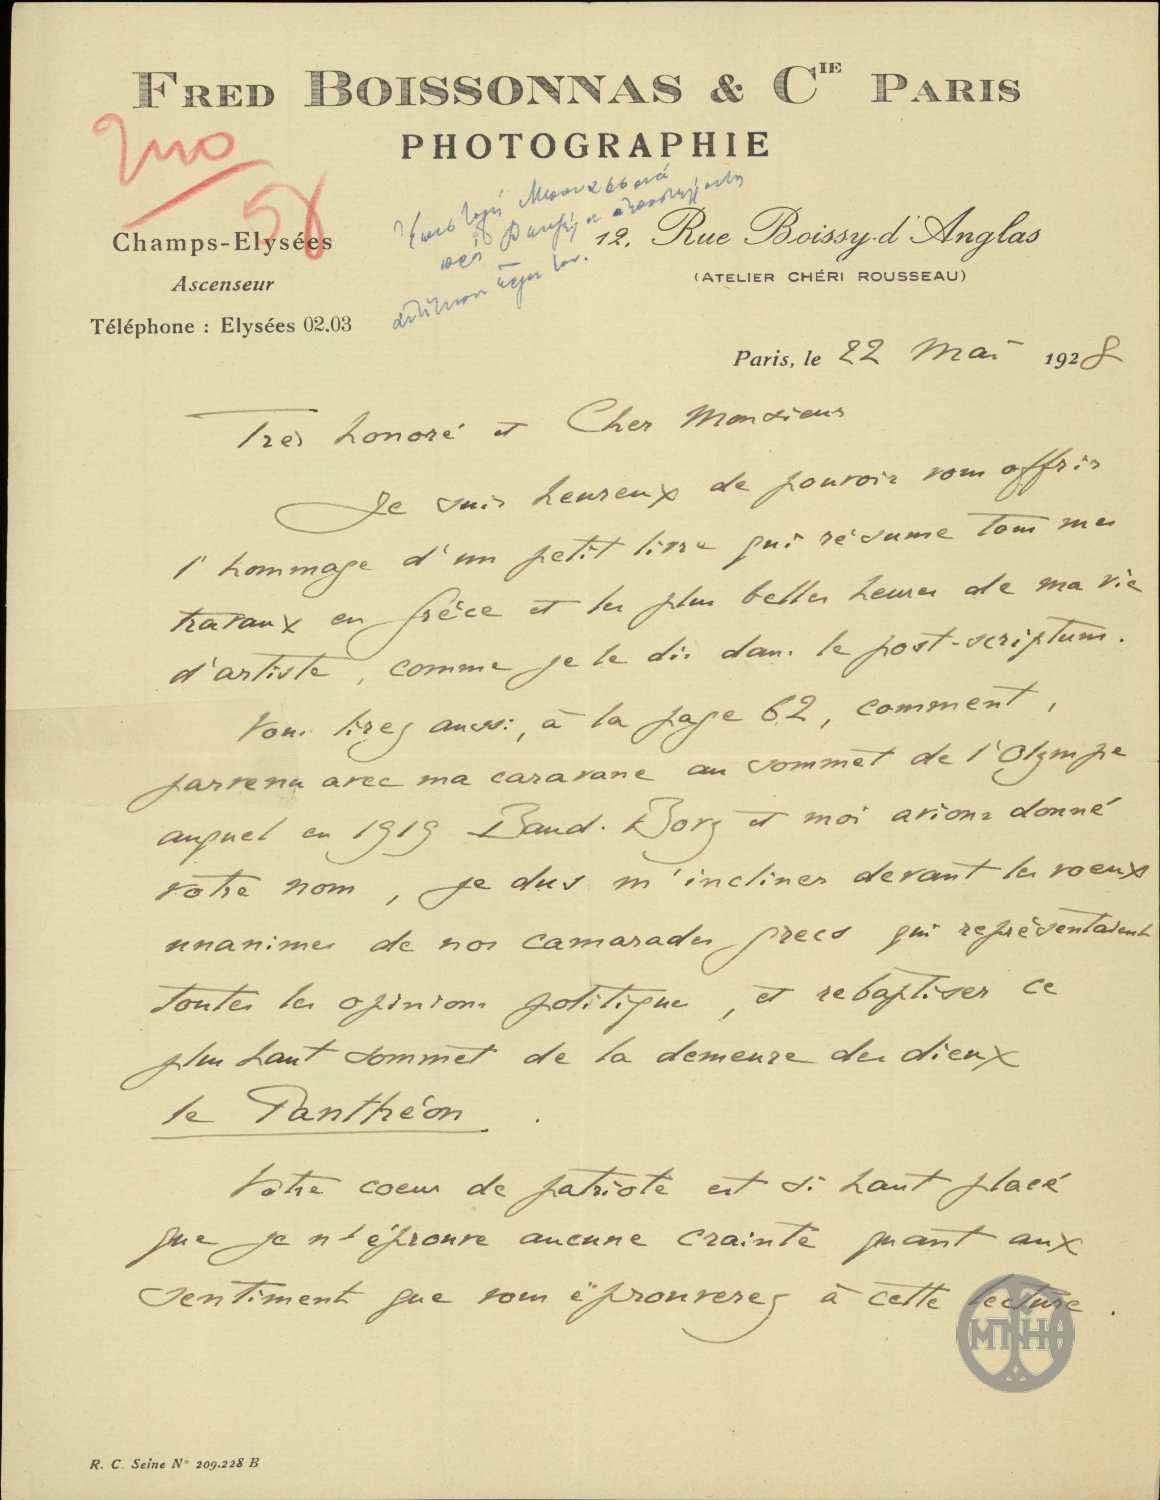 FRED BOISSONNAS & CIE PARIS
PHOTOGRAPHIE
58
Champs-Elysées
Ascenseur
Téléphone : Elysées 02.03
12, Rue Boissy d'Anglas
(ATELIER CHÉRI ROUSSEAU)
Paris, le 22 Mai 1928
Très honoré et Cher Monsieur
Je suis heureux de pouvoir vous offrir
l'hommage d'un petit livre qui résume tous mes
travaux en Grèce et les plus belles heures de ma vie
d'artiste, comme je le dis dans le post-scriptum.
Vous lirez aussi, à la page 62, comment,
parvenu avec ma caravane au sommet de l'Olympe
auquel en 1919 Baud-Bovy et moi avions donné
votre nom, je dus m'incliner devant les voeux
unanimes de nos camarades grecs qui représentaient
toutes les opinions politiques, et rebaptiser ce
plus haut sommet de la demeure des dieux
le Panthéon.
Votre coeur de patriote est si haut placé
que je n'éprouve aucune crainte quant aux
sentiments que vous éprouverez à cette lecture.
ΜΠΗ
R. C. Seine N° 209.228 B